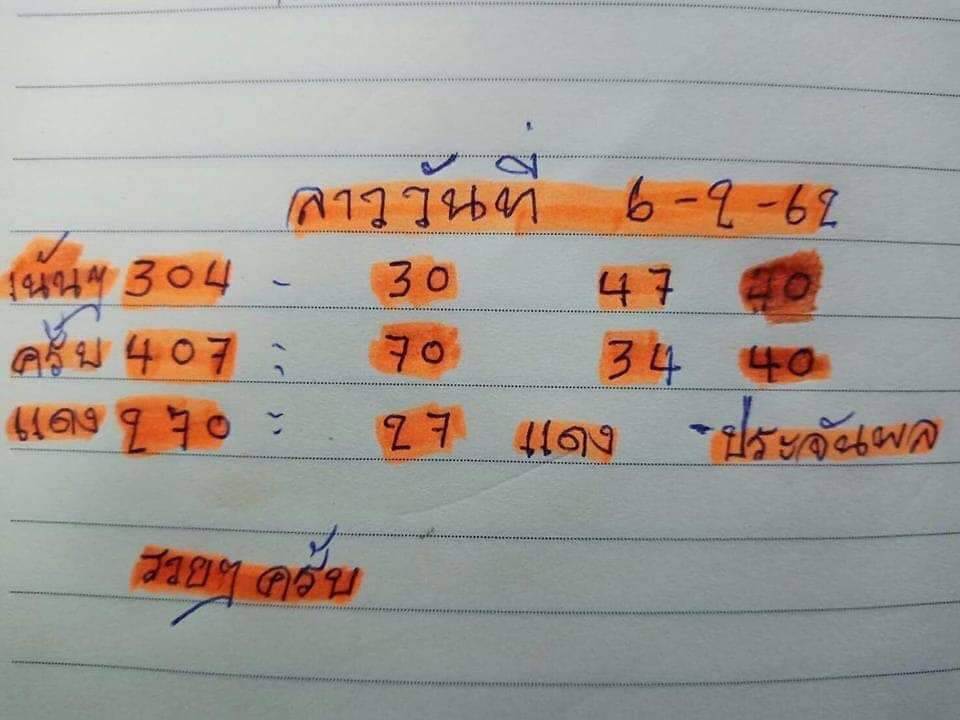 ลาววันที่ 6-2-62
เน้นๆ 304 - 30 47 40
ครับ 407 : 70 34 40
แดง 270 : 27 แดง - ประจันพล
รวยๆ ครับ